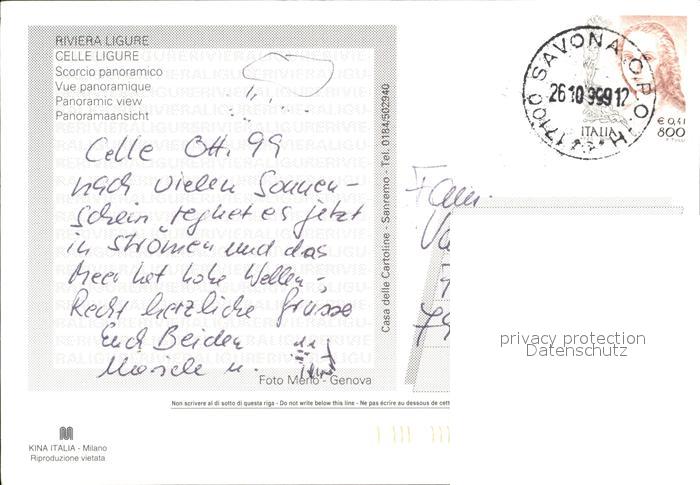 RIVIERA LIGURE
CELLE LIGURE
Scorcio panoramico
Vue panoramique
Panoramic view
Panoramaansicht
Celle Okt. 99
nach vielen Sonnen-
schein regnet es jetzt
in Strömen und das
Meer hat hohe Wellen
Recht herzliche Grüsse
Euch Beiden
u.
Foto Merlo - Genova
Casa delle Cartoline - Sanremo - Tel. 0184/502940
17100 SAVONA C.P.O.
26 10 999 12
ITALIA
€ 0,41
800
Fam.
privacy protection
Datenschutz
Non scrivere al di sotto di questa riga - Do not write below this line - Ne pas écrire au dessous de cett
KINA ITALIA - Milano
Riproduzione vietata